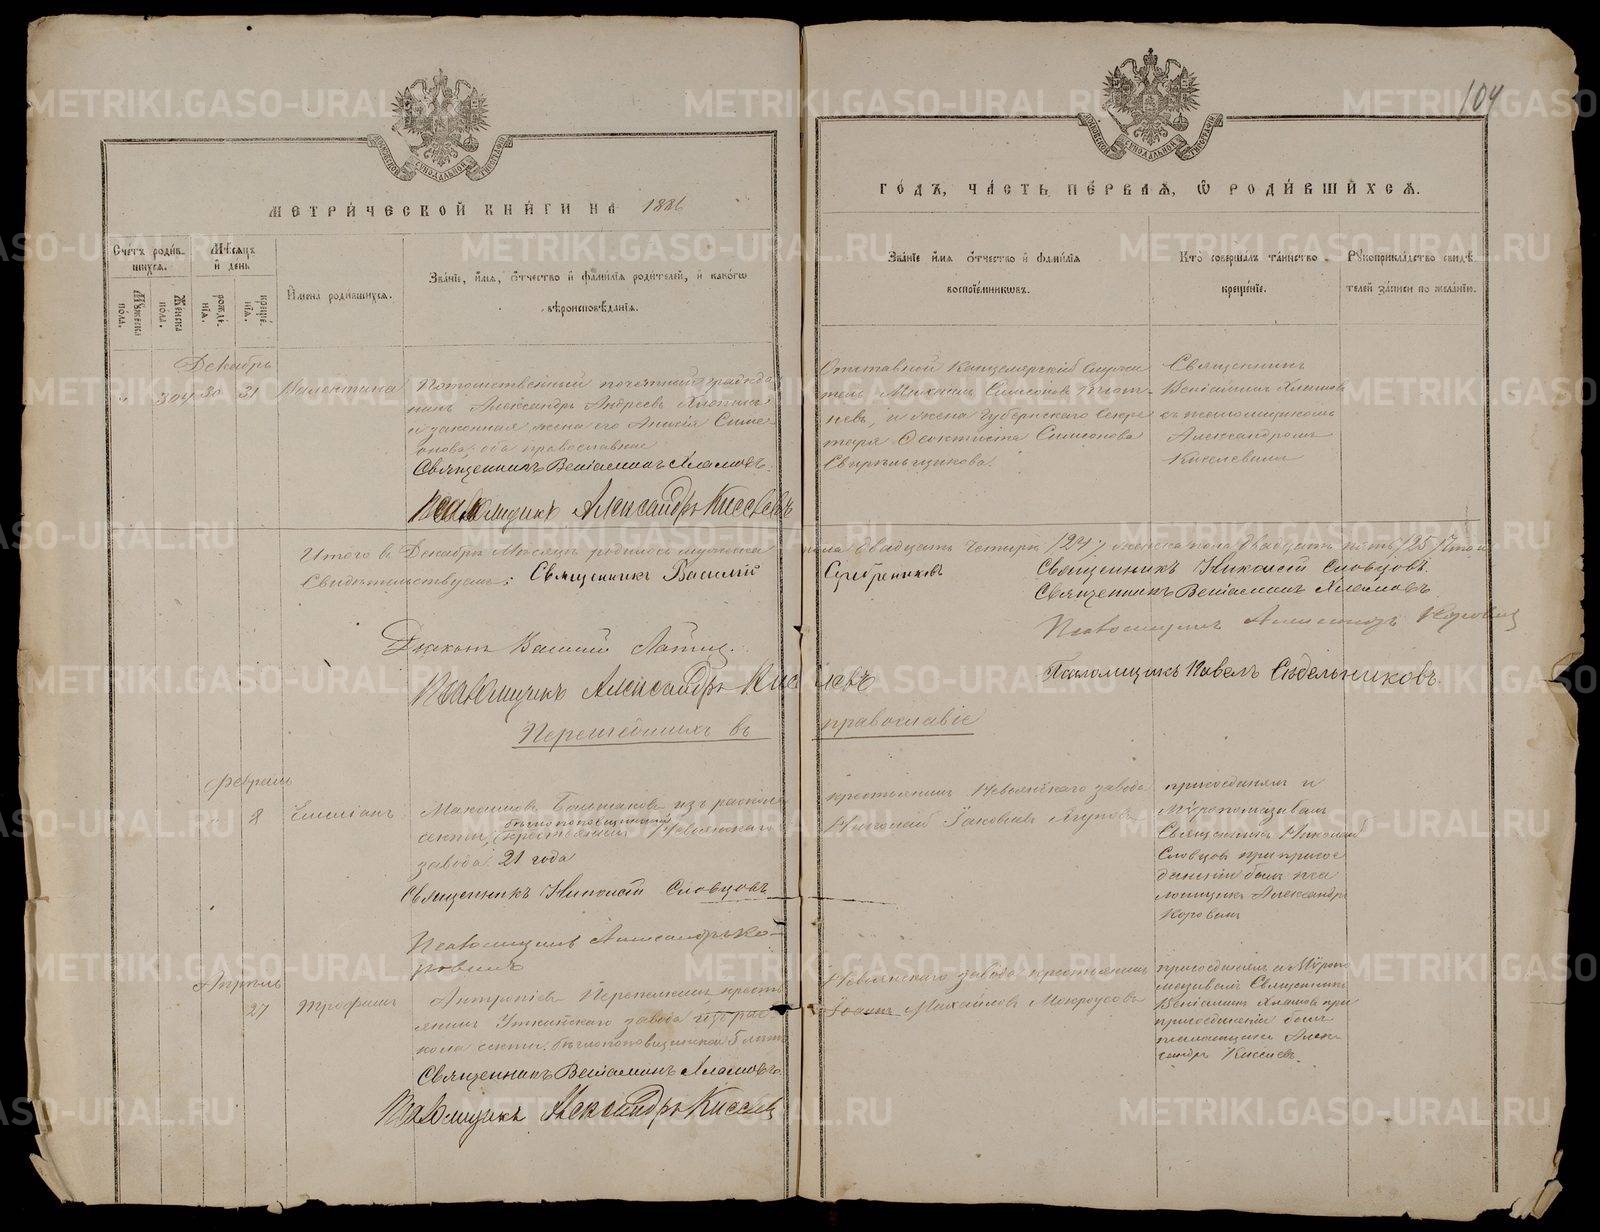 104
МЕТРИЧЕСКОЙ КНИГИ НА 1886
ГОДЪ, ЧАСТЬ ПЕРВАЯ, Ѡ РОДИВШИХСЯ.
Счетъ родившихся.
Мужеска пола.
Женска пола.
Мѣсяцъ и день
рожденія.
крещенія.
Имена родившихся.
Званіе, имя, отчество и фамилія родителей, и какогѡ
вѣроисповѣданія.
Званіе имя отчество и фамилія
воспріемникѡвъ.
Кто совершалъ таинство
крещенія.
Рукоприкладство свидѣ
телей записи по желанію.
Декабрь
304 30 31 Валентина
Потомственный почетный гражда
нинъ Александръ Андреевъ
и законная жена его Анисія Симе
онова, оба православные
Священникъ Веніаминъ Хламовъ.
Псаломщикъ Александръ Киселевъ
Отставной Канцелярскій служи
тель Михаилъ Симеоновъ
и жена Губернскаго Секре
таря Ѳеоктиста Симеонова
Священникъ
Веніаминъ Хламовъ
съ псаломщикомъ
Александромъ
Киселевымъ
Итого въ Декабрѣ Мѣсяцѣ родилось мужеска пола двадцать четыре /24/, женска пола двадцать пять /25/
Свидѣтельствуемъ: Священникъ Василій Серебренниковъ
Священникъ Николай Словцовъ.
Священникъ Веніаминъ Хламовъ.
Псаломщикъ Александръ Коровинъ
Діаконъ Василій
Псаломщикъ Александръ Киселевъ
Псаломщикъ Павелъ Сѣдельниковъ.
Перешедшихъ въ православіе
Февраль
8 Емиліанъ
Максимовъ изъ раскола
секты бѣглопоповщинской крестьянинъ Невьянскаго
завода 21 года
Священникъ Николай Словцовъ
Псаломщикъ Александръ Ко-
ровинъ
крестьянинъ Невьянскаго завода
Николай
присоединялъ и
Мѵропомазывалъ
Священникъ Николай
Словцовъ при присое
диненіи былъ пса
ломщикъ Александръ
Коровинъ
Апрѣль
27 Трофимъ
Антроповъ Перепелкинъ, кресть
янинъ Уткинскаго завода изъ рас
кола секты бѣглопоповщинской
Священникъ Веніаминъ Хламовъ.
Псаломщикъ Александръ Киселевъ
Невьянскаго завода крестьянинъ
Іоаннъ Михайловъ Мокроусовъ
присоединялъ и Мѵропо
мазывалъ Священникъ
Веніаминъ Хламовъ при
присоединеніи былъ
псаломщикъ Алек
сандръ Киселевъ.
METRIKI.GASO-URAL.RU